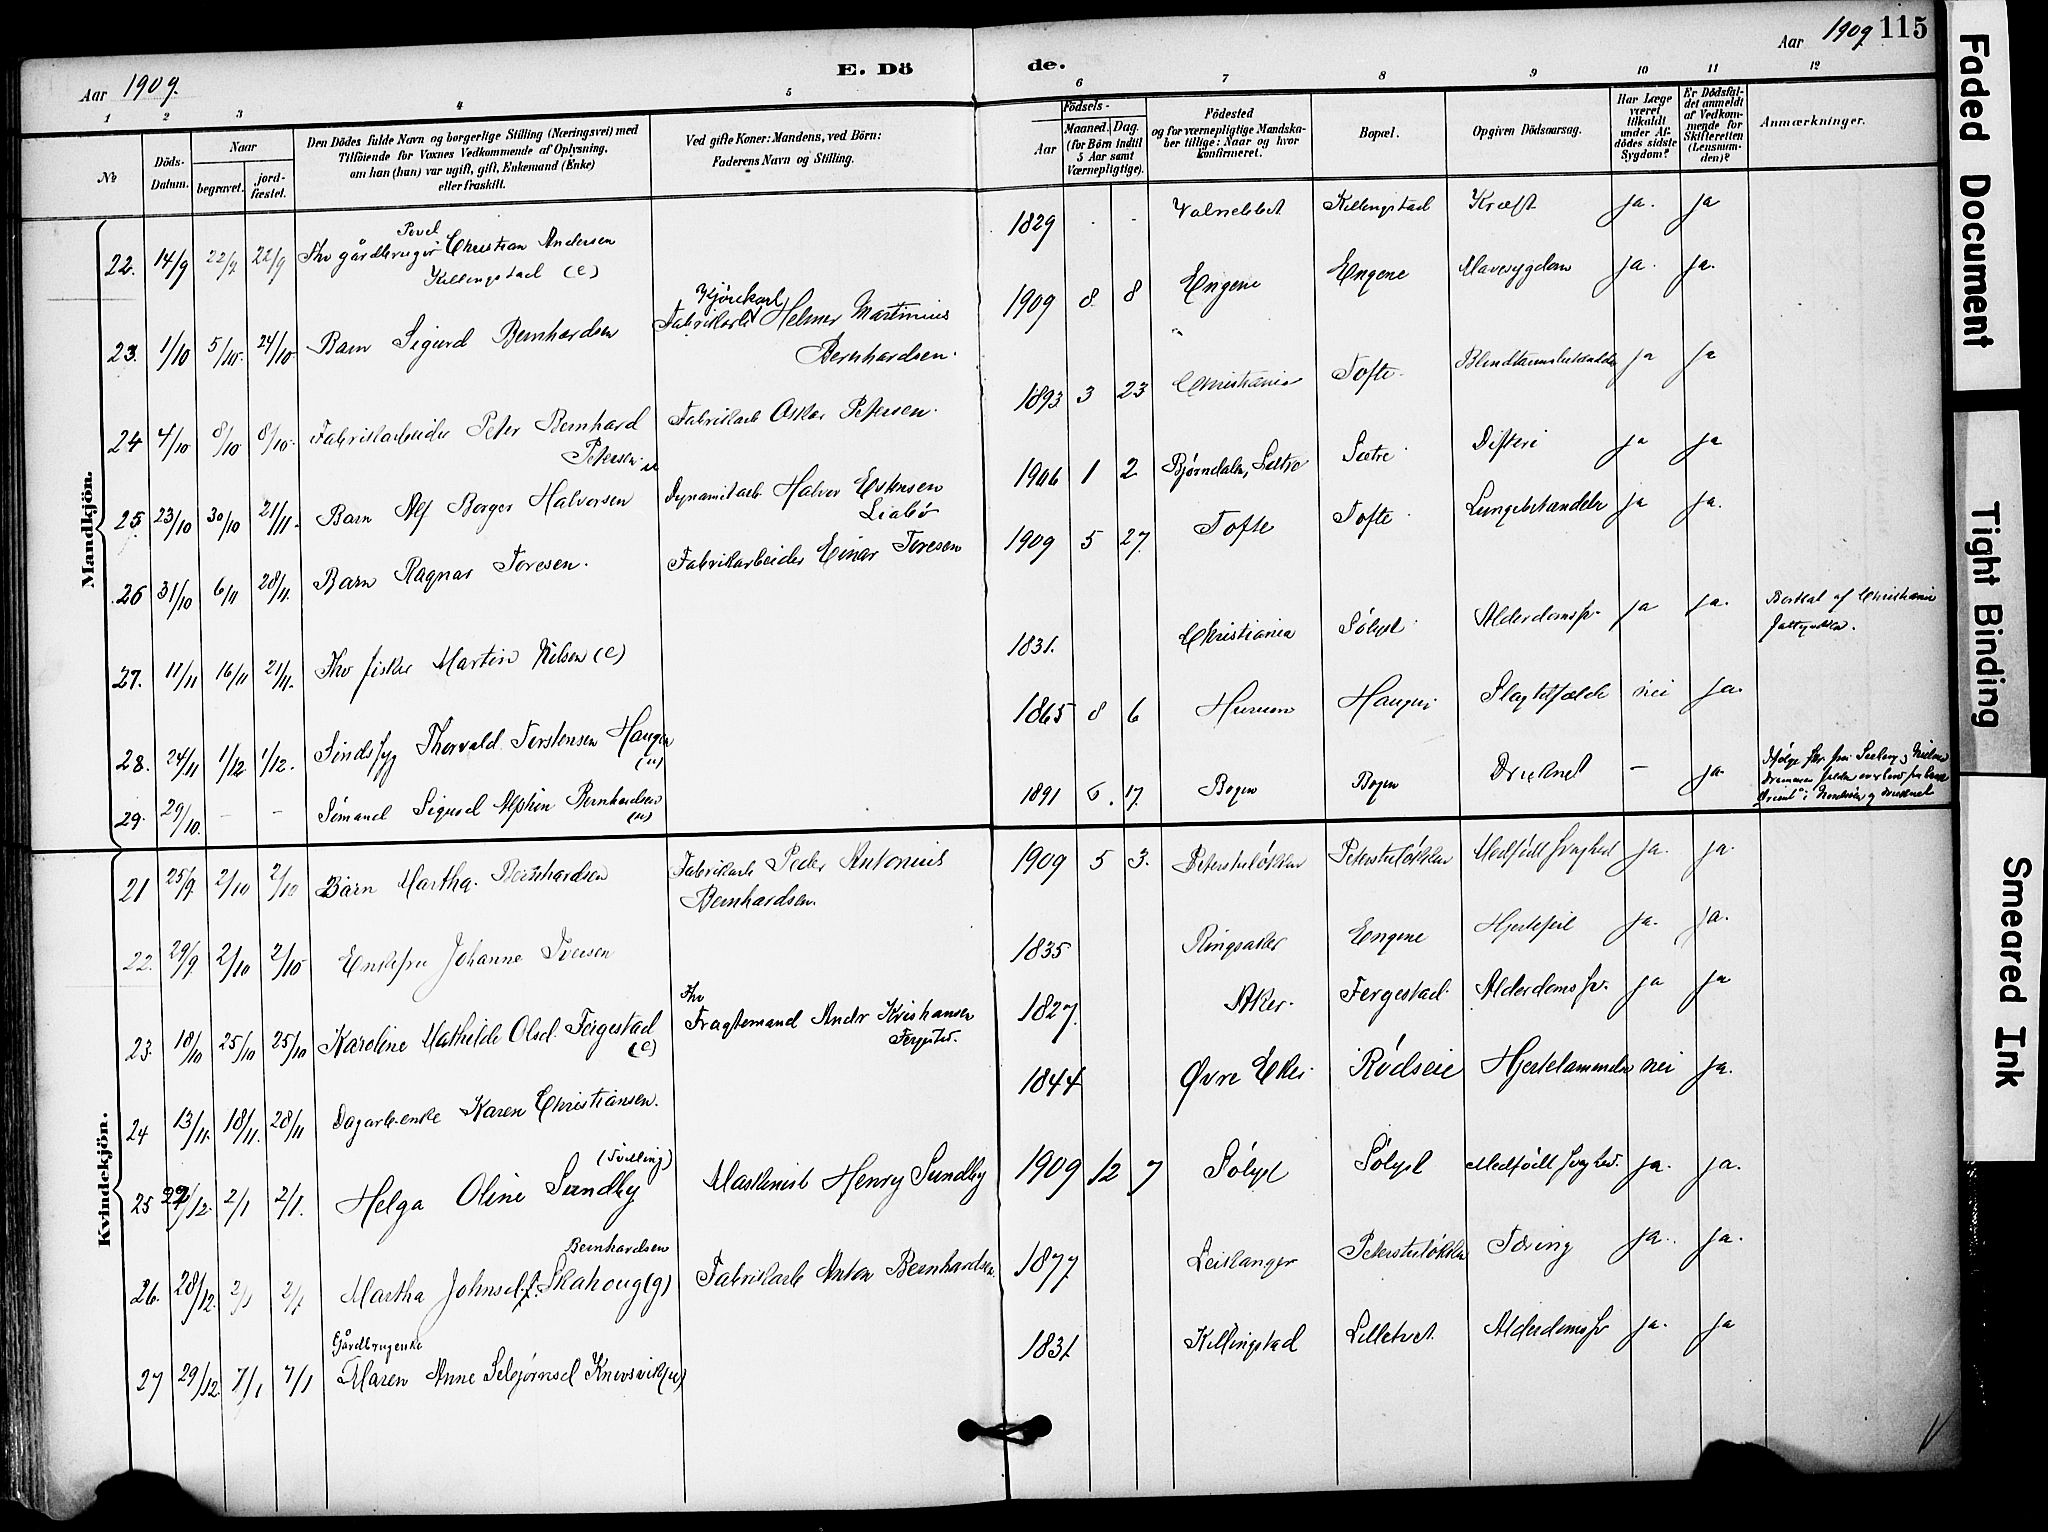 Aar 1909.
E. Döde.
Aar 1909 115
1 2 3 4 5 6 7 8 9 10 11 12
№
Döds-Datum.
Naar
begravet.
jord-fæstet.
Den Dödes fulde Navn og borgerlige Stilling (Næringsvei) med
Tilföiende for Voxnes Vedkommende af Oplysning,
om han (hun) var ugift, gift, Enkemand (Enke)
eller fraskilt.
Ved gifte Koner: Mandens, ved Börn:
Faderens Navn og Stilling.
Födsels-
Aar
Maaned. Dag.
(for Börn indtil
5 Aar samt
Værnepligtige).
Födested
og for værnepligtige Mandska-
ber tillige: Naar og hvor
konfirmeret.
Bopæl.
Opgiven Dödsaarsag.
Har Læge
været
tilkaldt
under Af-
dödes sidste
Sygdom?
Er Dödsfal-
det anmeldt
af Vedkom-
mende for
Skifteretten
(Lensmanden)?
Anmærkninger.
Mandkjön.
22. 14/9 22/9 22/9 Fhv gårdbruger Povel Christian Andersen
Killingstad (e)
1829 Killingstad Kræft ja. ja
23. 1/10 5/10. 24/10 Barn Sigurd Bernhardsen
Kjørekarl
Fabrikarb Helmer Martinius
Bernhardsen.
1909 8 8 Engene Engene Mavesygdom ja. ja.
24 4/10 8/10 8/10. Fabrikarbeider Peter Bernhard
Petersen. u
Fabrikarb Oskar Petersen.
1893 3 23 Christiania Tofte. Blindtarmsbetændelse ja ja
25. 23/10 30/10 21/11. Barn Alf Borger Halvorsen
Dynamitarb Halvor Evensen
Liabö
1906 1 2 Bjørndalen, Sætre Sætre Difteri ja ja
26 31/10 6/11 28/11. Barn Ragnar Toresen.
Fabrikarbeider Einar Toresen
1909 5 27. Tofte Tofte Lungebetændelse ja ja.
27. 11/11 16/11 21/11. Fhv fisker Martin Nilsen (e)
1831. Christiania Sölyst Alderdomssv. ja ja.
af Christiania
28. 24/11 1/12 1/12. Sindssyg Thorvald Torstensen Haugen
(u)
1865 8 6 Hurum Haugen Slagtilfælde nei ja.
29. 29/10. – – Sömand Sigurd Alphin Bernhardsen
(u)
1891 6. 17. Bogen Bogen Druknet – ja.
Kvindekjön.
21 25/9 2/10 2/10 Barn Martha Bernhardsen
Fabrikarb Peder Antonius
Bernhardsen.
1909 5 3. Peterstuløkken Peterstuløkken Medfödt svaghed ja. ja.
22. 29/9 2/10 2/10 Enkefru Johanne Iversen
1835 Ringsaker Engene Hjertefeil ja. ja.
23. 18/10 25/10 25/10 Karoline Mathilde Olsd. Fergestad
(e)
Fhv
Fragtemand Andr Kristiansen
Fergestad.
1827. Aker. Fergestad. Alderdomssv. ja ja
24 13/11. 18/11. 28/11 Dagarb.enke Karen Christiansen.
1844 Øvre Eker Rödseie Hjertelammelse nei ja.
25 27/12. 2/1 2/1. Helga Oline Sundby
(tvilling)
Maskinist Henry Sundby
1909 12 7 Sölyst Sölyst Medfödt svaghed. ja. ja.
26. 28/12. 2/1 2/1 Bernhardsen
Martha Johnsd. f. Skahoug (g)
Fabrikarb Anton Bernhardsen
1877. Leikanger Peterstuløkken Tæring ja. ja.
27 29/12. 7/1 7/1 Gårdbrugenke
Maren Anne Sebjørnsd Knivsvik (e)
1831 Killingstad Lilletvet. Alderdomssv ja. ja
Faded Document
Tight Binding
Smeared Ink